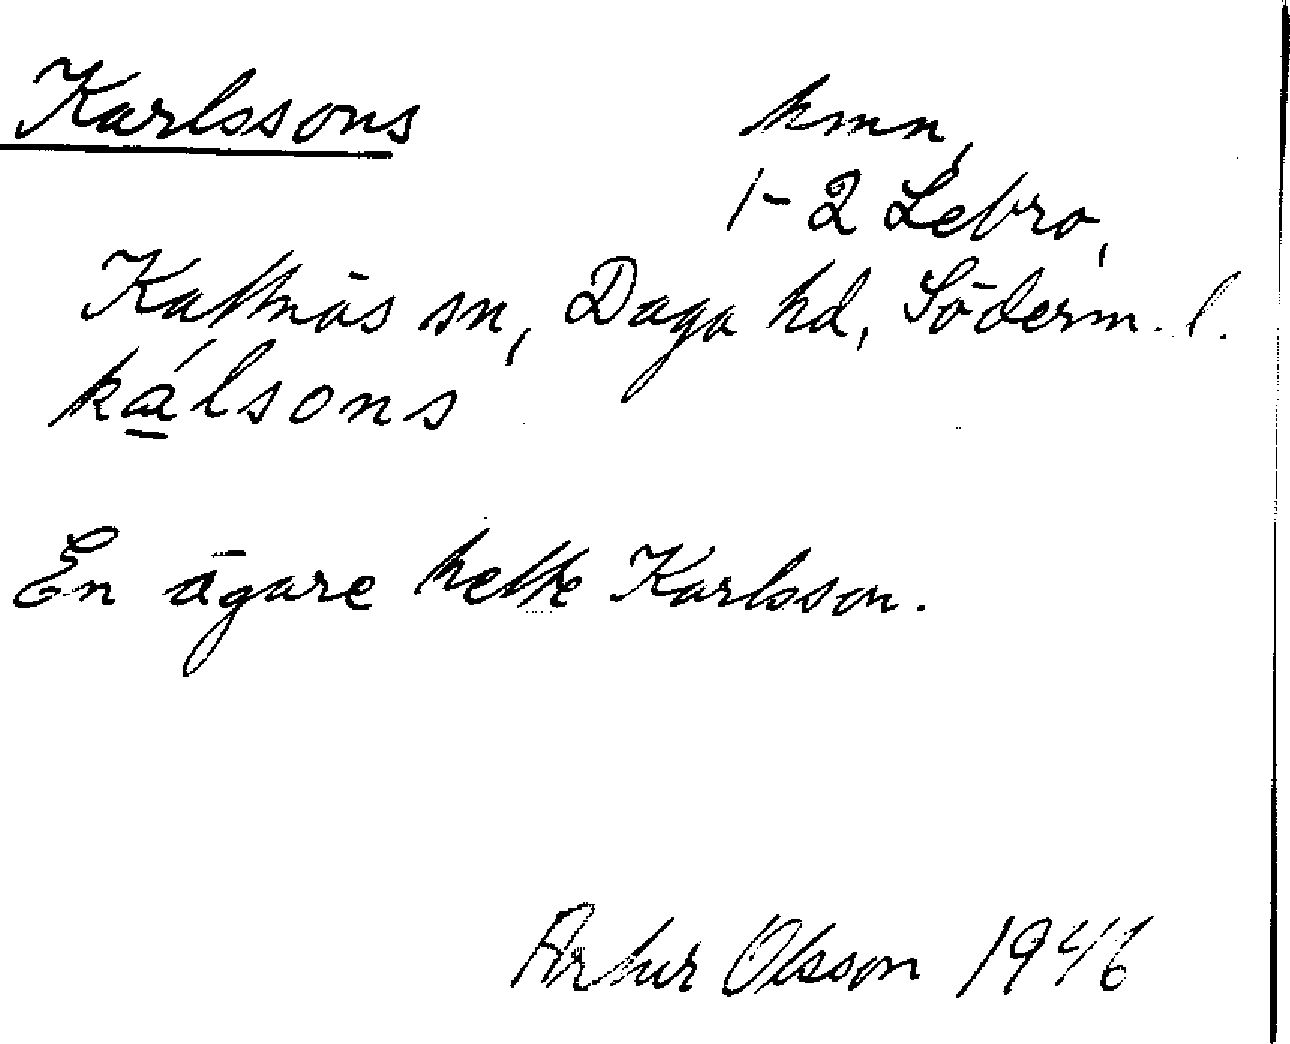 Karlssons
hmn,
1-2 Lebro,
Kattnäs sn, Daga hd, Söderm. l.
kálsons
En ägare hette Karlsson.
Artur Olsson 1946